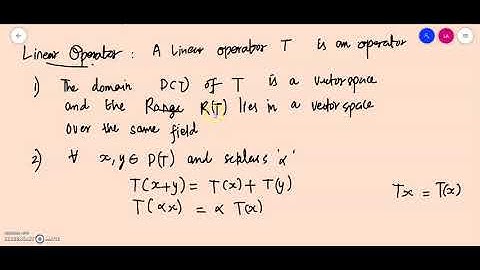 Linear Operator : A Linear operator T is an operator
1) The domain D(T) of T is a vector space
and the Range R(T) lies in a vector space
over the same field
2) ∀ x, y ∈ D(T) and scalars 'α'
T(x+y) = T(x) + T(y)
T(αx) = α T(x)
Tx = T(x)